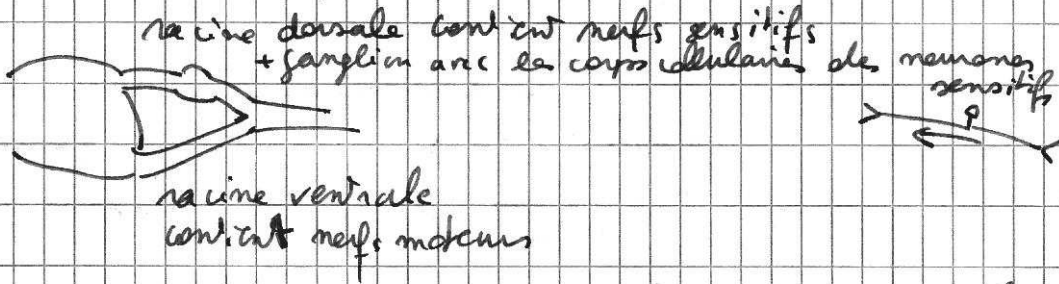 racine dorsale contient nerfs sensitifs
+ ganglion avec les corps cellulaires des neurones
sensitifs
racine ventrale
contient nerfs moteurs